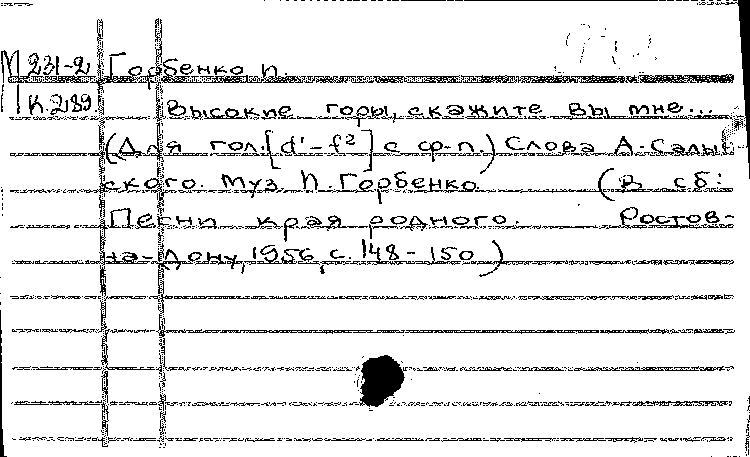 М 231-2 Горбенко П.
К.289. Высокие горы, скажите вы мне...
(Для гол. [d'-f²] с ф-п.) Слова А. Салын-
ского. Муз. П. Горбенко. (В сб:
Песни края родного. Ростов-
на-Дону, 1956, с. 148-150)